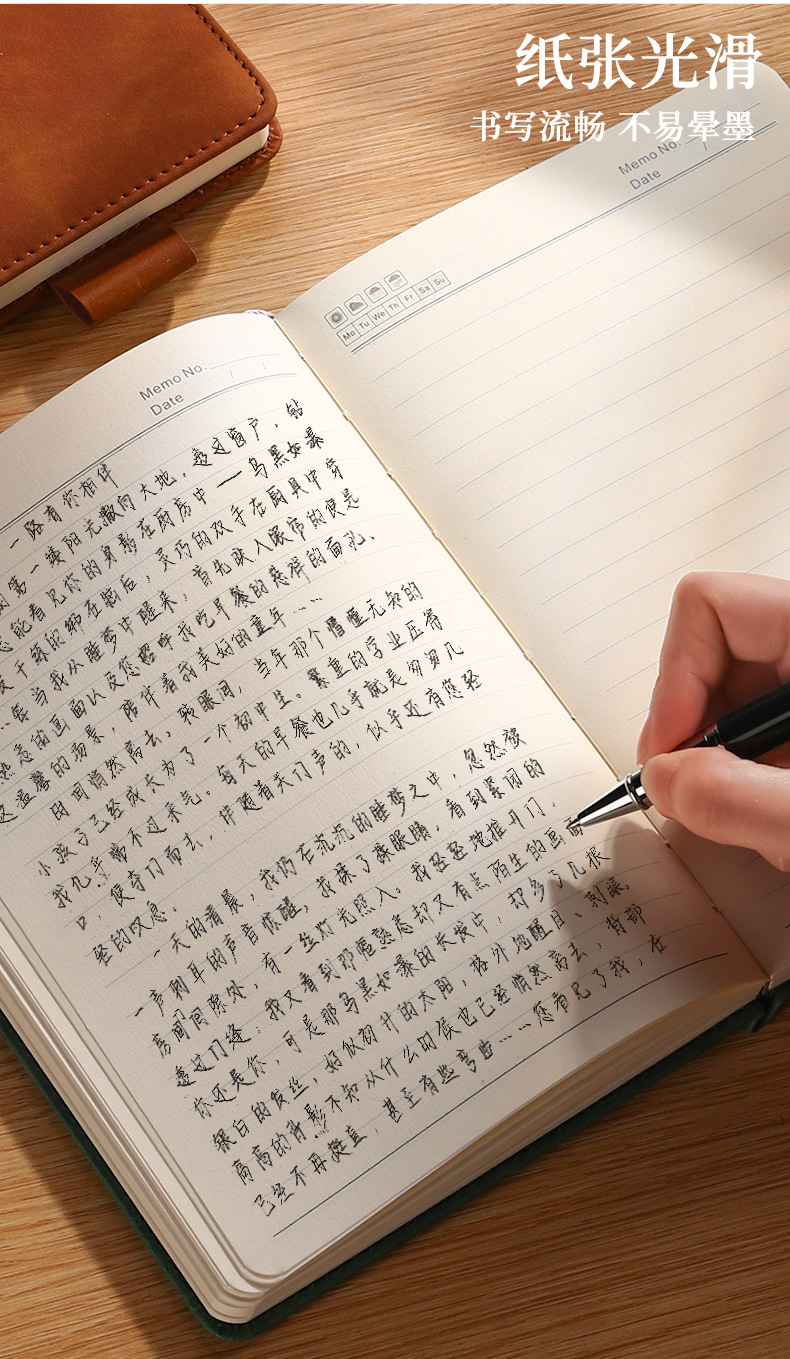 纸张光滑
书写流畅 不易晕墨
Memo No.
Date
Mo Tu We Th Fr Sa Su
Memo No.
Date
一路有你相伴
第一缕阳光撒向大地，透过窗户，钻
能看见你的身影在厨房中——乌黑如瀑
干练的绑在脑后，灵巧的双手在厨具中穿
每当我从睡梦中醒来，首先映入眼帘的便是
熟悉的画面以及您招呼我吃早餐的慈祥的面孔、
这温馨的场景，陪伴着我美好的童年……
时间悄然离去。转眼间，当年那个懵懂无知的
小孩子已经成长为了一个初中生。繁重的学业压得
我几乎喘不过来气。每天的早餐也几乎就是匆匆几
口，便夺门而去，伴随着关门声的，似乎还有您轻
轻的叹息。
一天的清晨，我仍在沉沉的睡梦之中，忽然被
一声刺耳的声音惊醒，我揉了揉眼睛，看到紧闭的
房间间隙处，有一丝灯光照入。我轻轻地推开门，
透过门缝：我又看到那熟悉却又有点陌生的画面
你还是你，可是那乌黑如瀑的长发中，却多了几根
银白的发丝，好似初升的太阳，格外地醒目、刺眼。
高高的背影不知从什么时候也已经悄然离去，背部
已经不再挺直，甚至有些弯曲……您看见了我，在